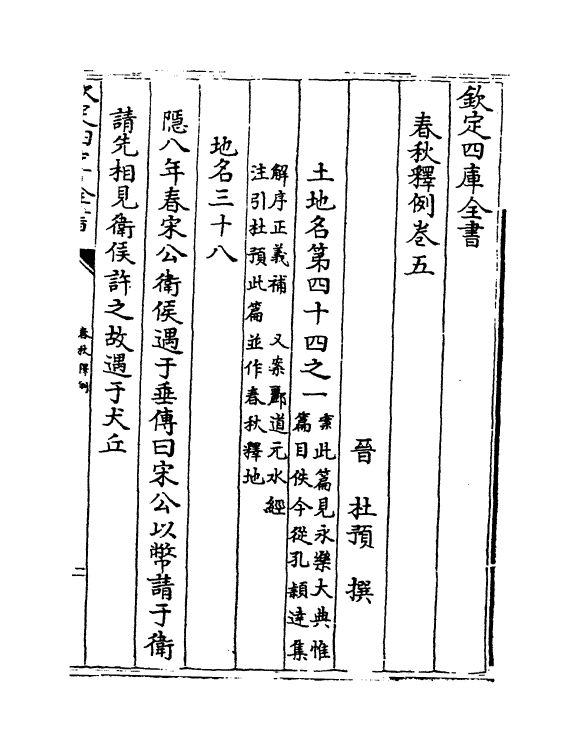 欽定四庫全書
春秋釋例卷五
晉 杜預 撰
土地名第四十四之一
案此篇見永樂大典惟
篇目佚今從孔穎達集
解序正義補 又案酈道元水經
注引杜預此篇並作春秋釋地
地名三十八
隱八年春宋公衛侯遇于垂傳曰宋公以幣請于衛
請先相見衛侯許之故遇于犬丘
欽定四庫全書
春秋釋例
二